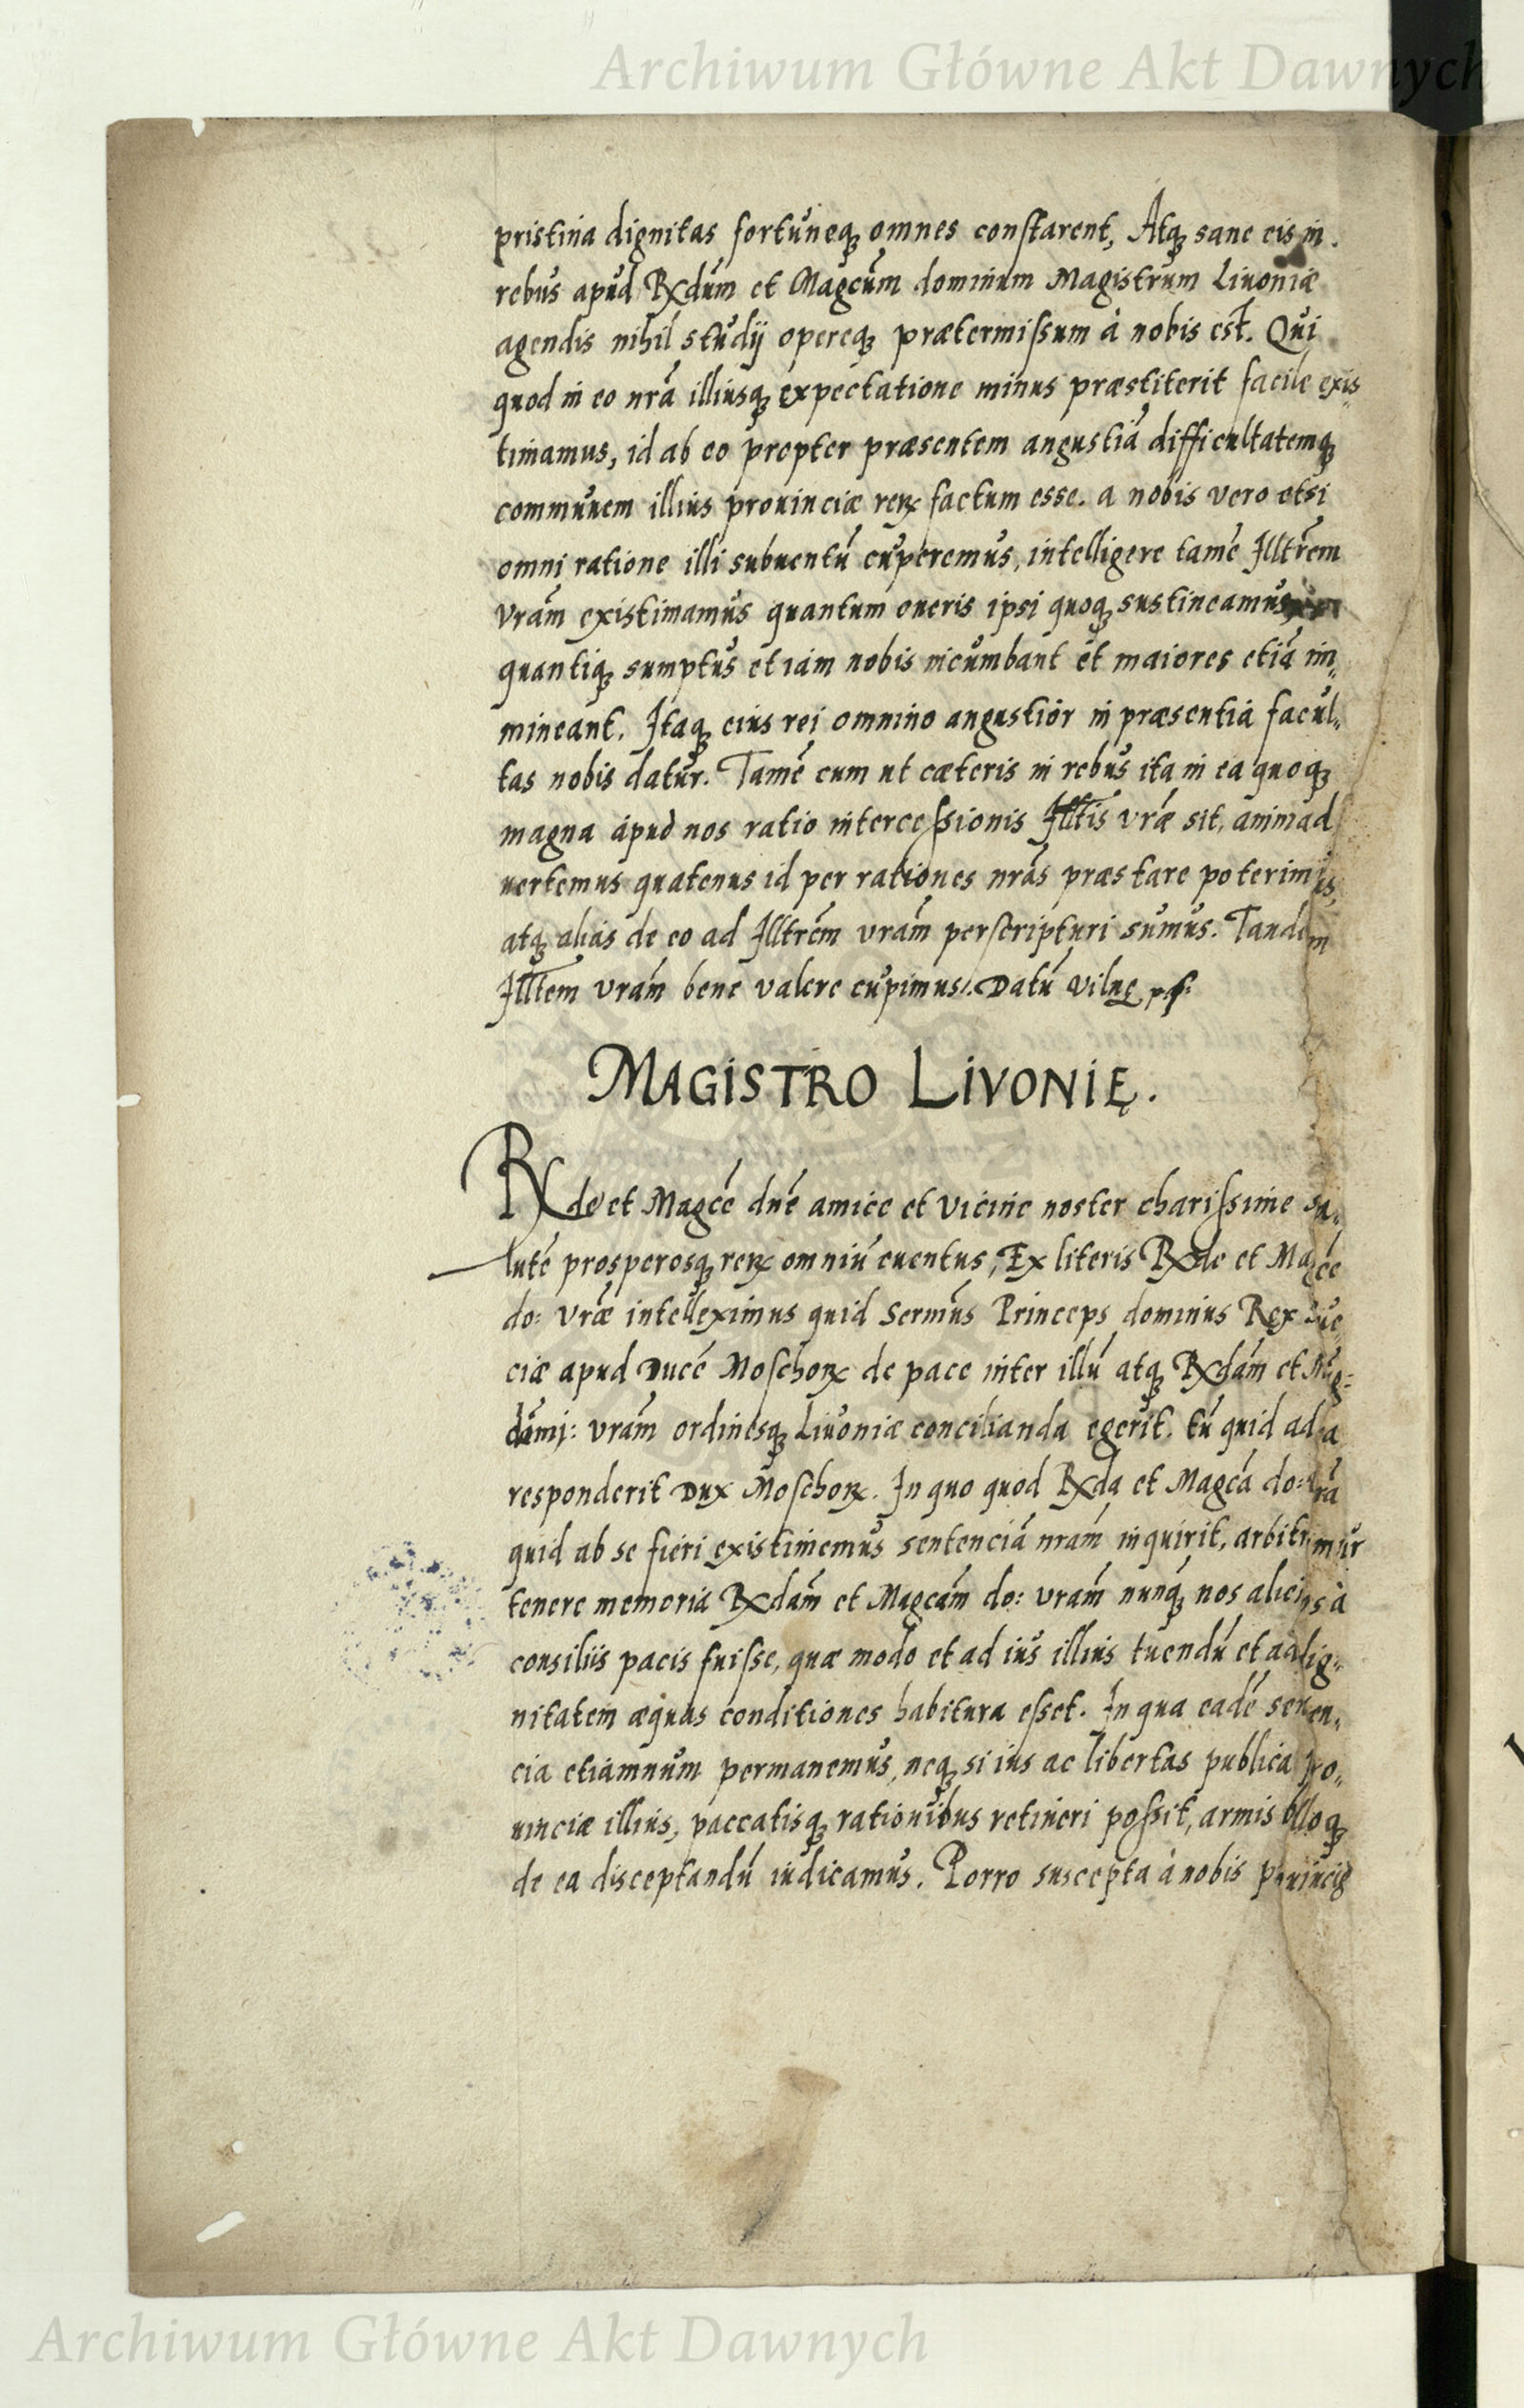 Archiwum Główne Akt Dawnych
pristina dignitas fortuneq; omnes constarent, Atq; sane eis in
rebus apud Rxdum et Magcum dominum Magistrum Livoniæ
agendis nihil studij opereq; prætermissum à nobis est. Qui
quod in eo nrã illiusq; expectatione minus præstiterit facile exis„
timamus, id ab eo propter præsentem angustiã difficultatemq;
communem illius prouinciæ rerx factum esse. a nobis vero etsi
omni ratione illi subuentũ cuperemus, intelligere tamẽ Illtrẽm
Vrãm existimamus quantum oneris ipsi quoq; sustineamus,
quantiq; sumptus et iam nobis incumbant et maiores etiã im„
mineant. Itaq; eius rei omnino angustior in præsentia facul„
tas nobis datur. Tamẽ cum ut cæteris in rebus ita in ea quoq;
magna apud nos ratio intercessionis Illtis vræ sit, animad
uertemus quatenus id per rationes nrãs præstare poterimus,
atq; alias de eo ad Illtrẽm vrãm perscripturi sumus. Tandem
Illtem vrãm bene valere cupimus. Datũ Vilnę
MAGISTRO LIVONIĘ.
Rxde et Magcẽ dnẽ amice et vicine noster charissime sa„
lutẽ prosperosq; rerx omniũ euentus, Ex literis Rxde et Magcẽ
do: vræ intelleximus quid Sermũs Princeps dominus Rex Sue„
ciæ apud Ducẽ Moschorx de pace inter illũ atq; Rxdãm et Mag:
dãmj: vrãm ordinesq; Livoniæ concilianda egerit. tũ quid ad ea
responderit Dux Moschorx. In quo quod Rxda et Magcã do: vrã
quid ab se fieri existimemus sentenciã nrãm inquirit, arbitramur
tenere memoria Rxdãm et Magcãm do: vrãm nunq; nos alienos à
consiliis pacis fuisse, quæ modo et ad ius illius tuendũ et ad dig„
nitatem æquas conditiones habitura esset. In qua eadẽ senten„
cia etiamnum permanemus, neq; si ius ac libertas publica pro„
uinciæ illius, paccatisq; rationibus retineri possit, armis
de ea disceptandũ iudicamus. Porro suscepta à nobis prouincię
Archiwum Główne Akt Dawnych